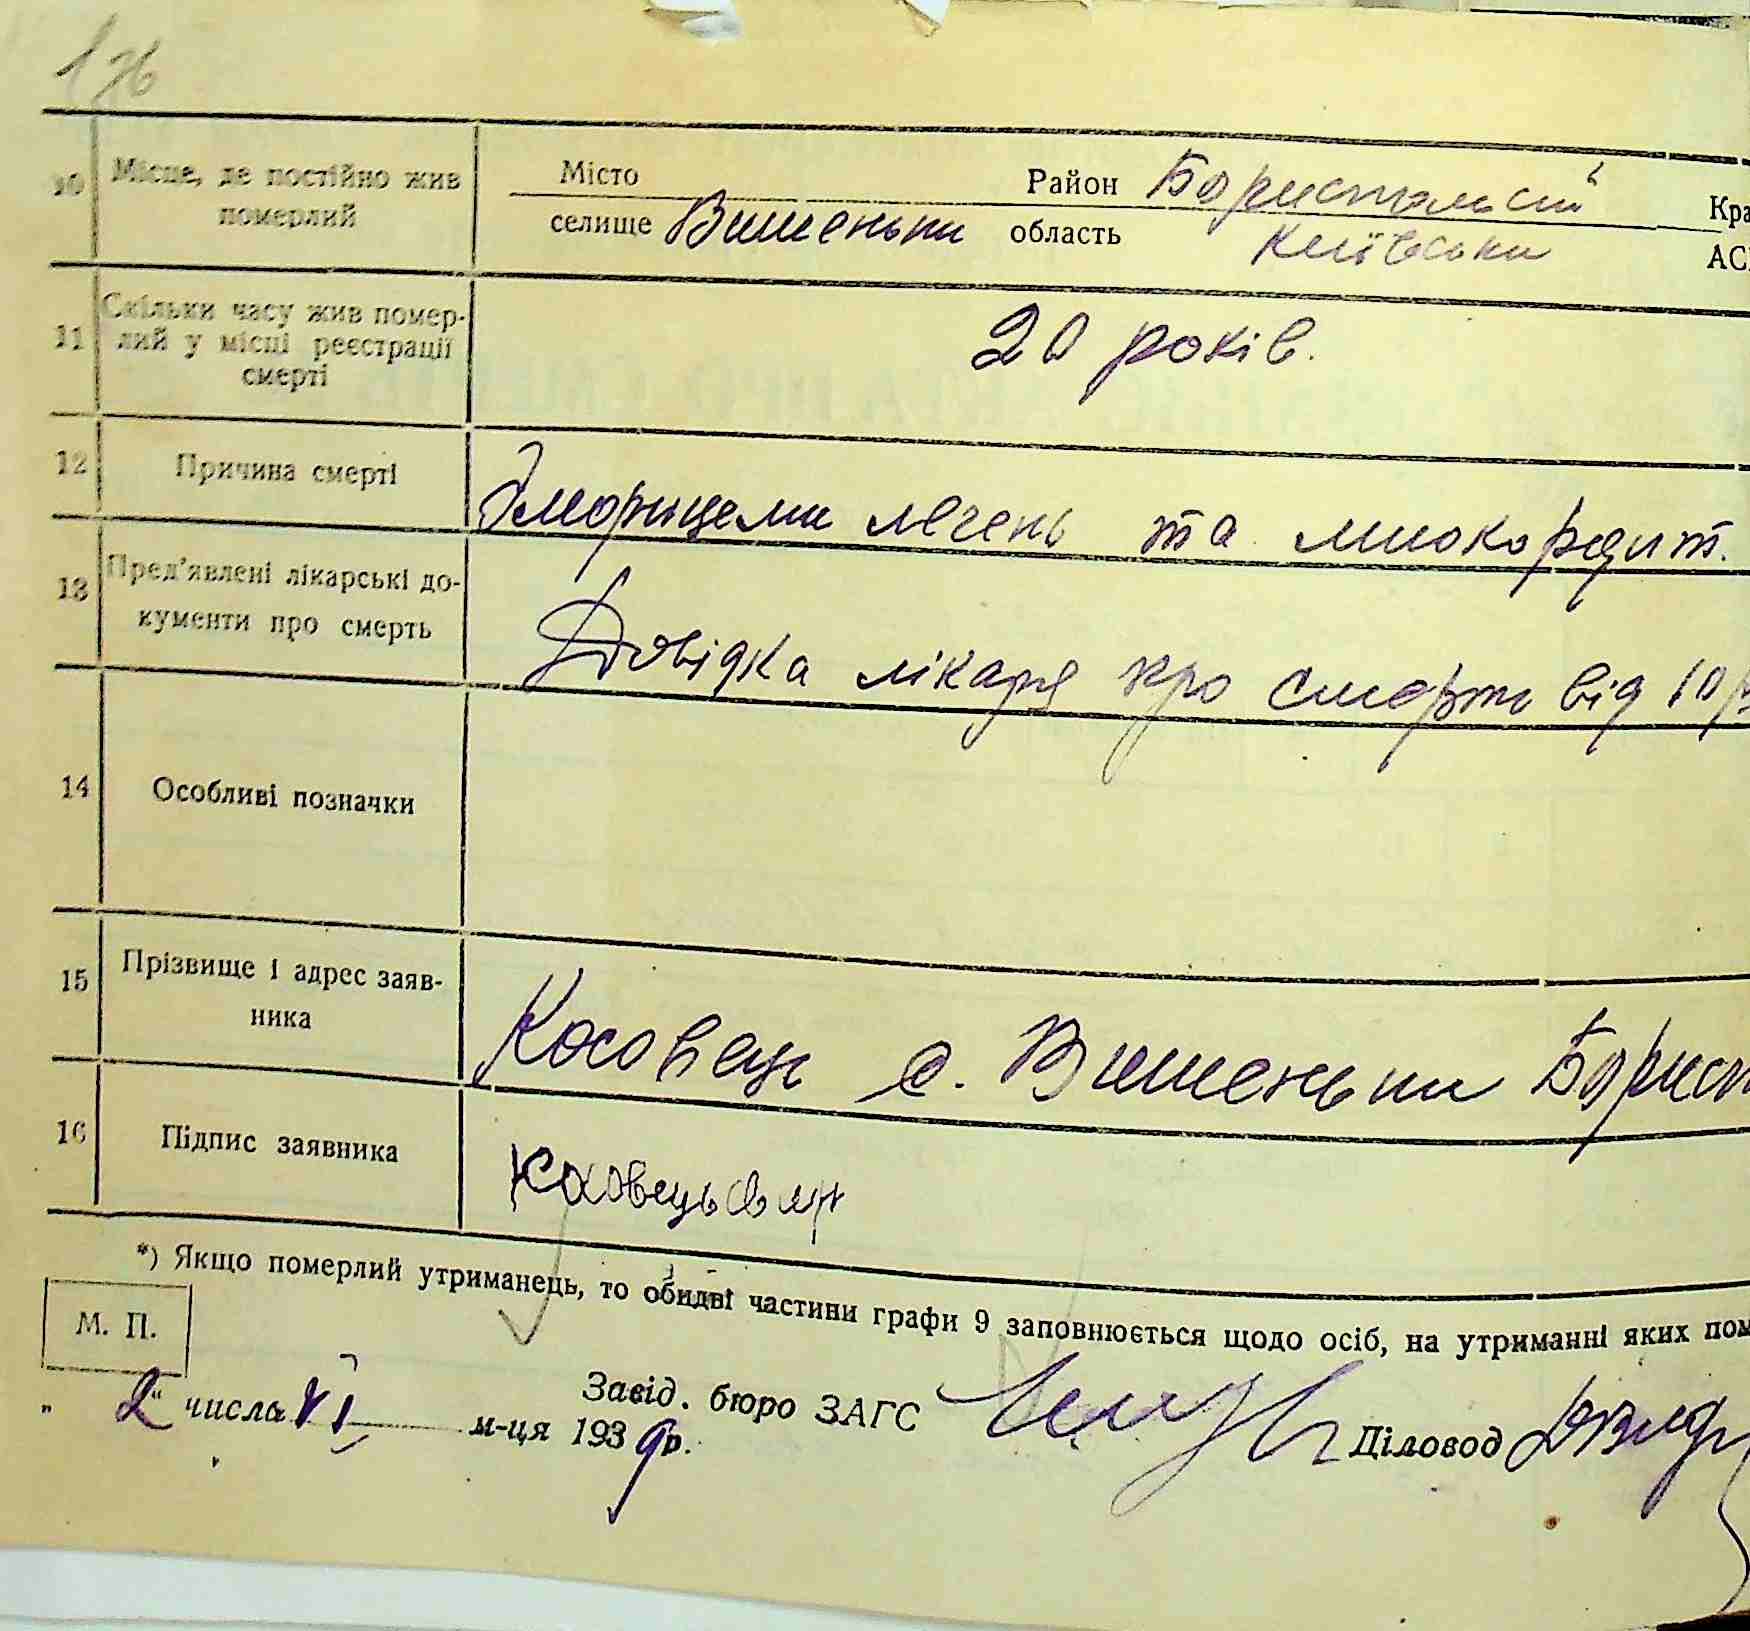 176
10 Місце, де постійно жив
померлий
Місто Район Бориспольсій Кра
селище Вишеньки область Київська АС
11 Скільки часу жив помер-
лий у місці реєстрації
смерті
20 років.
12 Причина смерті
легень та миокордит.
13 Пред'явлені лікарські до-
кументи про смерть
Довідка лікаря про смерть від 10
14 Особливі позначки
15 Прізвище і адрес заяв-
ника
Косовець с. Вишеньки Борисп
16 Підпис заявника
Косовець
*) Якщо померлий утриманець, то обидві частини графи 9 заповнюється щодо осіб, на утриманні яких пом
М. П.
„ 2 " числа VI м-ця 1939 р.
Завід. бюро ЗАГС Діловод